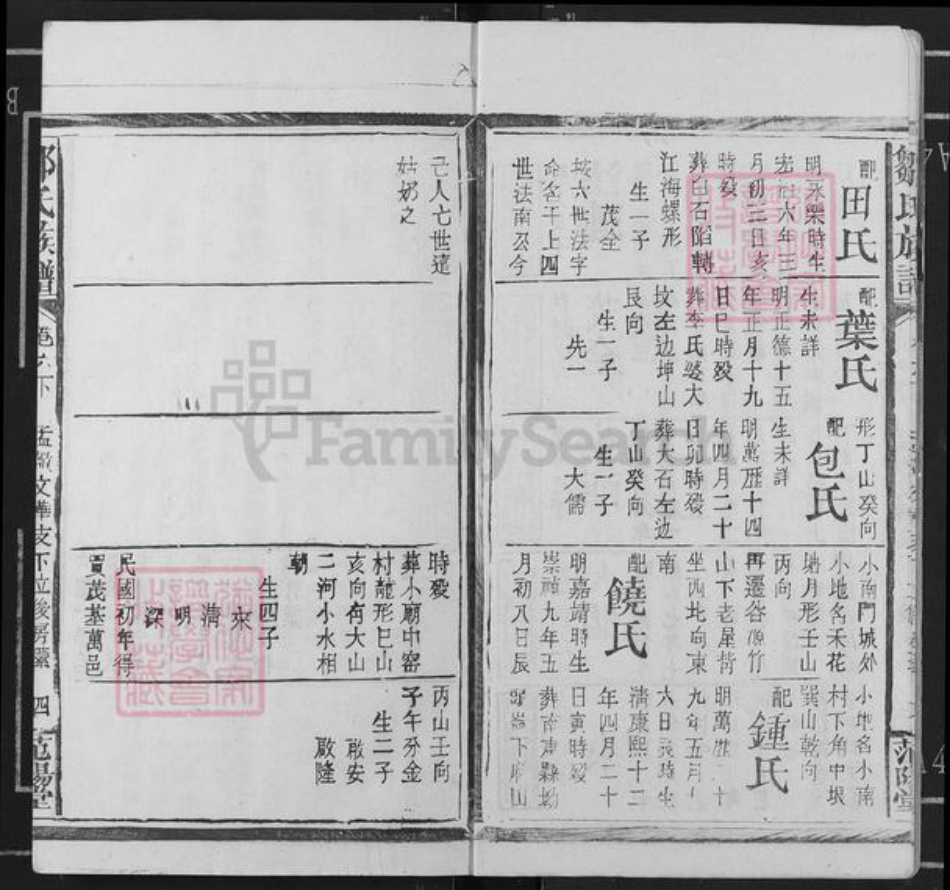 鄒氏族譜
配
田氏
明永樂時生
宏治六年三
月初三日亥
時歿
葬白石陷轉
江海螺形
生一子
茂全
按六世法字
命名于上四
世法南公今
配
葉氏
生未詳
明正德十五
年正月十九
日巳時歿
葬李氏婆大
坟左边坤山
艮向
生一子
先一
形丁山癸向
配
包氏
生未詳
明萬歷十四
年四月二十
日卯時歿
葬大石左边
丁山癸向
生一子
大儒
小南門城外
小地名禾花
塘月形壬山
丙向
再遷谷源竹
山下老屋背
坐西北向東
南
配
饒氏
明嘉靖時生
崇禎九年五
月初八日辰
小地名小南
村下角中垠
巽山乾向
配
鍾氏
九年五月
六日辰時生
清康熙十二
年四月二十
日寅時歿
范陽堂
亡人七世達
姑奶之
時歿
葬小廟中窰
村龍形巳山
亥向有大山
二河小水相
朝
生四子
來
清
明
深
民國初年得
買茂基萬邑
丙山壬向
子午分金
生二子
啟安
啟隆
鄒氏族譜
卷六下
四
范陽堂
FamilySearch